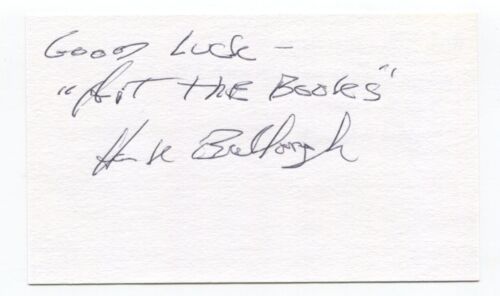 Good Luck -
"Hit the Books"
Hank Bullough